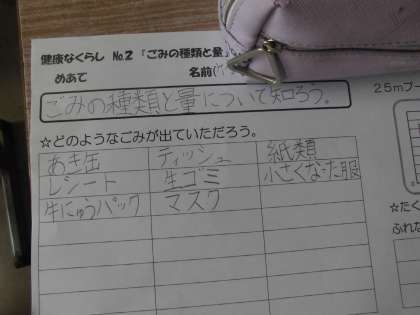 健康なくらし No.2 「ごみの種類と量」
めあて 名前(
ごみの種類と量について知ろう。
☆どのようなごみが出ていただろう。
あき缶 ティッシュ 紙類
レシート 生ゴミ 小さくなった服
牛にゅうパック マスク
25mプー
☆たく
ふれな